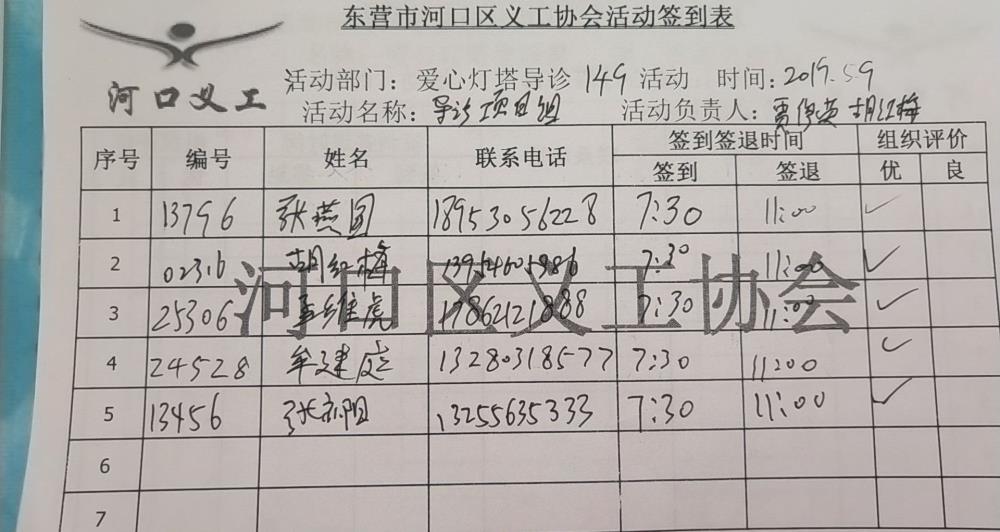 东营市河口区义工协会活动签到表
河口义工
活动部门：爱心灯塔导诊 149 活动 时间：2019.5.9
活动名称：导诊项目组 活动负责人：贾俊英 胡红梅
序号 编号 姓名 联系电话 签到签退时间 组织评价
签到 签退 优 良
1 13796 张燕团 18953056228 7:30 11:00 ✓
2 02316 胡红梅 13954605986 7:30 11:00 ✓
3 25306 孟维虎 17862121888 7:30 11:00 ✓
4 24528 牟建庭 13280318577 7:30 11:00 ✓
5 13456 张 阳 13255635333 7:30 11:00 ✓
6
7
河口区义工协会